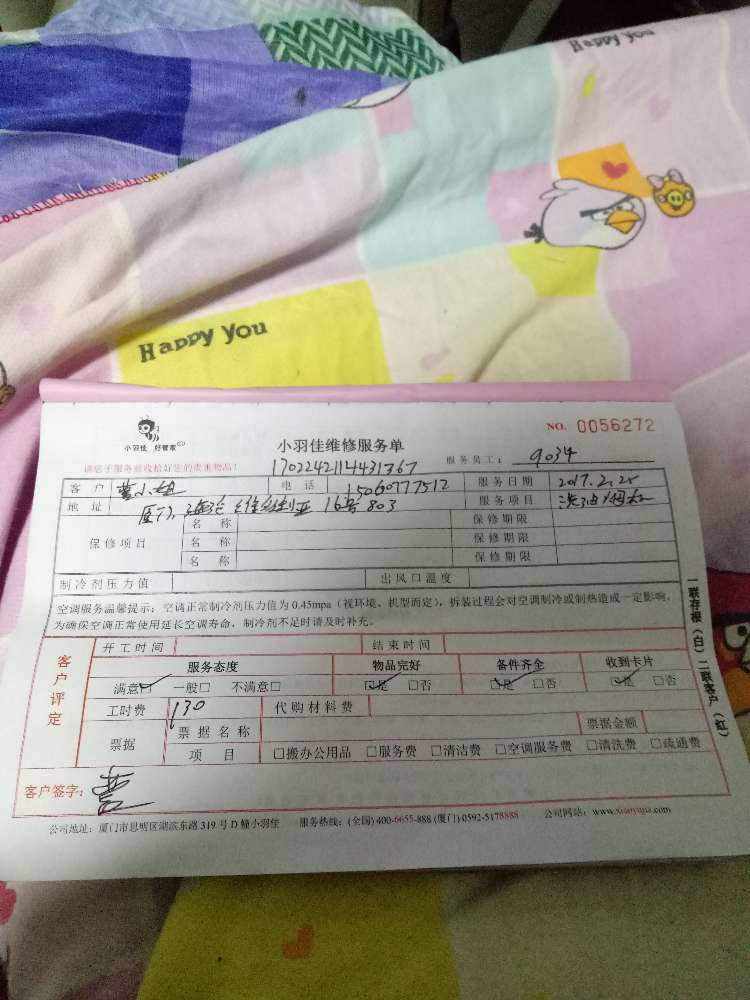 Happy you
Happy you
小羽佳 好管家
小羽佳维修服务单
NO. 0056272
请您于服务前收拾好您的贵重物品!
1702242114431367
服务员工: 9034
客户 曹小姐 电话 15060777512 服务日期 2017.2.25
地址 厦门 海沧 维多利亚 16号803 服务项目 洗油烟机
保修项目 名称 保修期限
名称 保修期限
名称 保修期限
制冷剂压力值 出风口温度
空调服务温馨提示:空调正常制冷剂压力值为0.45mpa(视环境、机型而定),拆装过程会对空调制冷或制热造成一定影响,
为确保空调正常使用延长空调寿命,制冷剂不足时请及时补充。
客户评定
开工时间 结束时间
服务态度 物品完好 备件齐全 收到卡片
满意☑ 一般□ 不满意□ ☑是 □否 ☑是 □否 ☑是 □否
工时费 130 代购材料费
票据 票据名称 票据金额
项目 □搬办公用品 □服务费 □清洁费 □空调服务费 □清洗费 □疏通费
客户签字: 曹
一联存根(白)二联客户(红)
公司地址:厦门市思明区湖滨东路319号D幢小羽佳 服务热线:(全国)400-6655-888 (厦门) 0592-5178888 公司网站:www.xiaoyujia.com